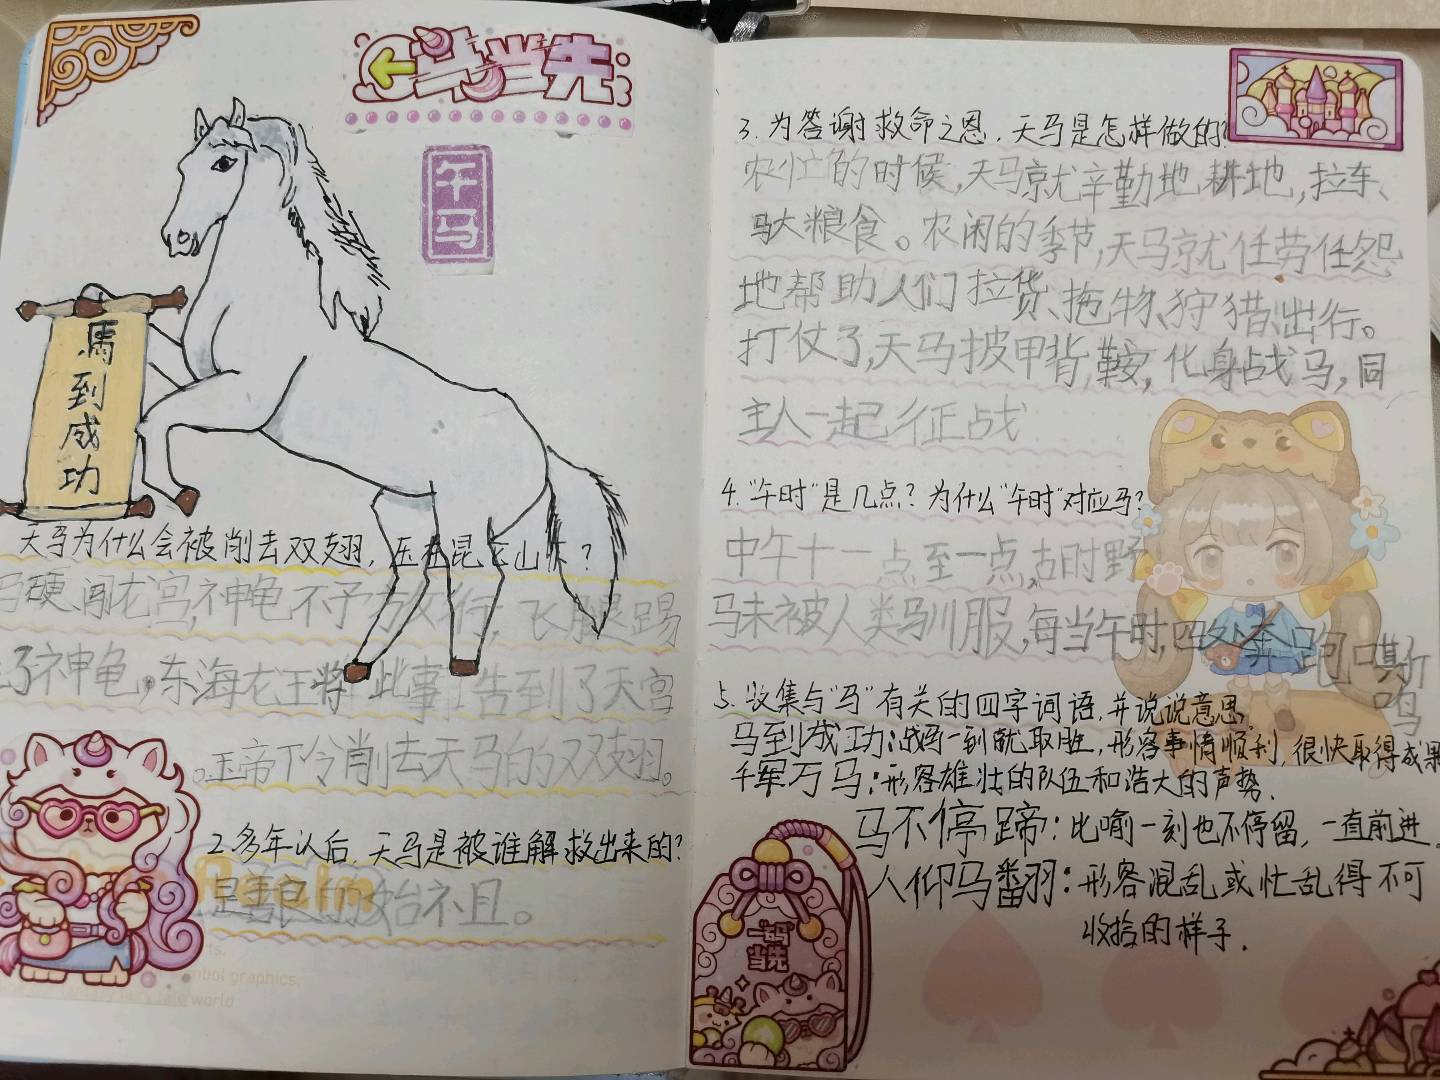 斗当先
午马
馬到成功
天马为什么会被削去双翅，压在昆仑山下？
硬闯龙宫，神龟不予放行，飞腿踢
了神龟，东海龙王将此事告到了天宫
。玉帝下令削去天马的双翅。
2.多年以后，天马是被谁解救出来的？
是善良的始不且。
3.为答谢救命之恩，天马是怎样做的？
农忙的时候，天马就辛勤地耕地，拉车、
驮粮食。农闲的季节，天马就任劳任怨
地帮助人们拉货、拖物、狩猎、出行。
打仗了，天马披甲背鞍，化身战马，同
主人一起征战
4.“午时”是几点？为什么“午时”对应马？
中午十一点至一点，古时野
马未被人类驯服，每当午时，四处奔跑嘶
鸣
5.收集与“马”有关的四字词语，并说说意思
马到成功：战马一到就取胜，形容事情顺利，很快取得成果
千军万马：形容雄壮的队伍和浩大的声势.
马不停蹄：比喻一刻也不停留，一直前进.
人仰马翻羽：形容混乱或忙乱得不可
收拾的样子.
一马
当先
ts.
nbol graphics,
world